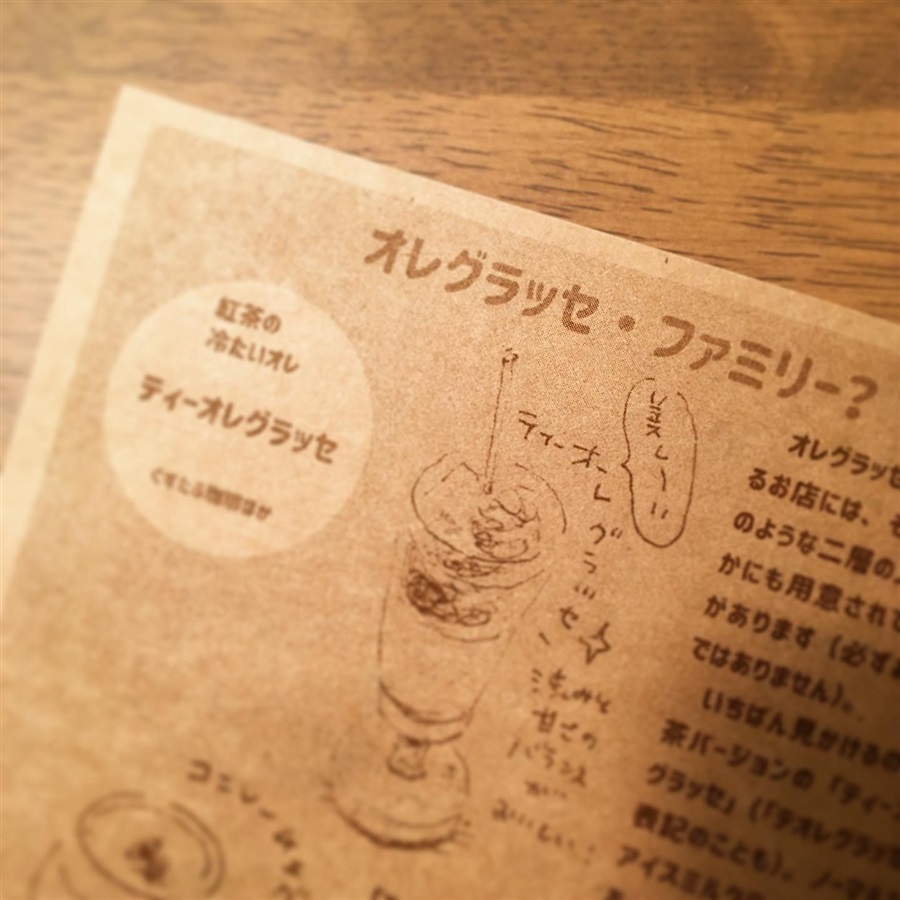 オレグラッセ・ファミリー?
紅茶の
冷たいオレ
ティーオレグラッセ
ぐすたふ珈琲ほか
ティーオーレグラッセ
渋みと
甘さの
バランス
が
おいしい!
オレグラッセ
るお店には、そ
のような二層の
かにも用意されて
があります(必ず
ではありません)。
いちばん見かけるの
茶バージョンの「ティー
グラッセ」(「テオレグラッセ
表記のことも)。ノーマル
アイスミルク